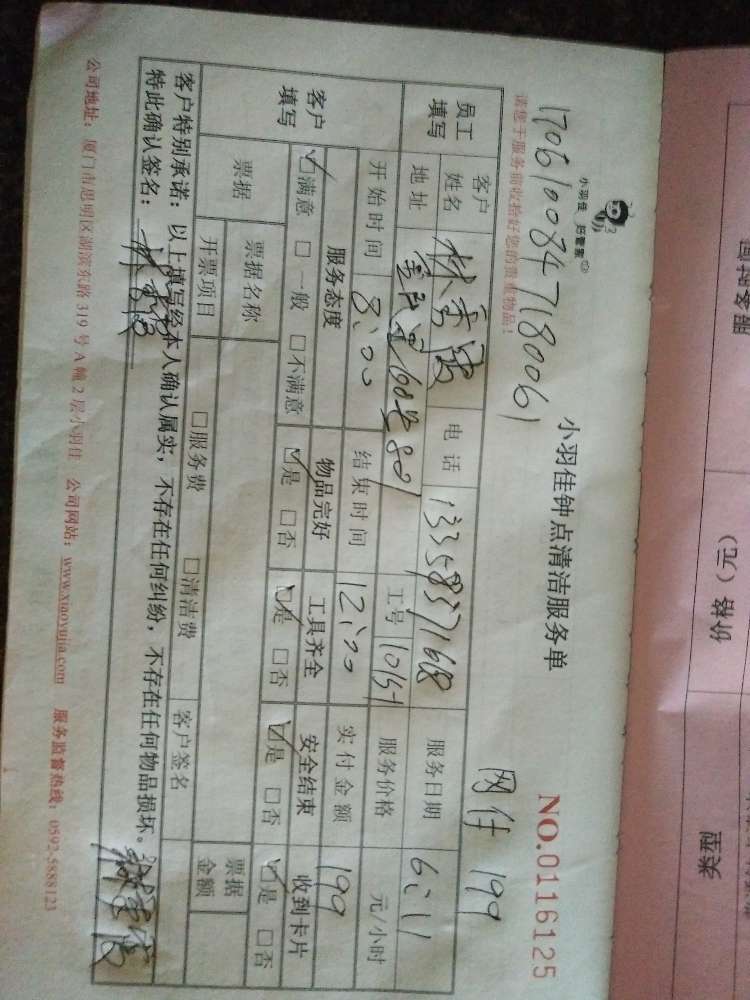 小羽佳 好管家
小羽佳钟点清洁服务单
NO.0116125
170610084718006)
请您于服务前收拾好您的贵重物品！
199
员工填写 客户姓名 林秀 电话 13358357168 服务日期 6:11
地址 60 801 工号 10154 服务价格 元/小时
开始时间 8:00 结束时间 12:00 实付金额 199
客户填写 服务态度 物品完好 工具齐全 安全结束 收到卡片
☑满意 □一般 □不满意 ☑是 □否 ☑是 □否 ☑是 □否 ☑是 □否
票据 票据名称 票据金额
开票项目 □服务费 □清洁费 客户签名
客户特别承诺：以上填写经本人确认属实，不存在任何纠纷，不存在任何物品损坏。
特此确认签名：
公司地址：厦门市思明区湖滨东路319号A幢2层小羽佳 公司网站：www.xiaoyujia.com 服务监督热线：0592-5888123
服务时间
价格（元）
类型